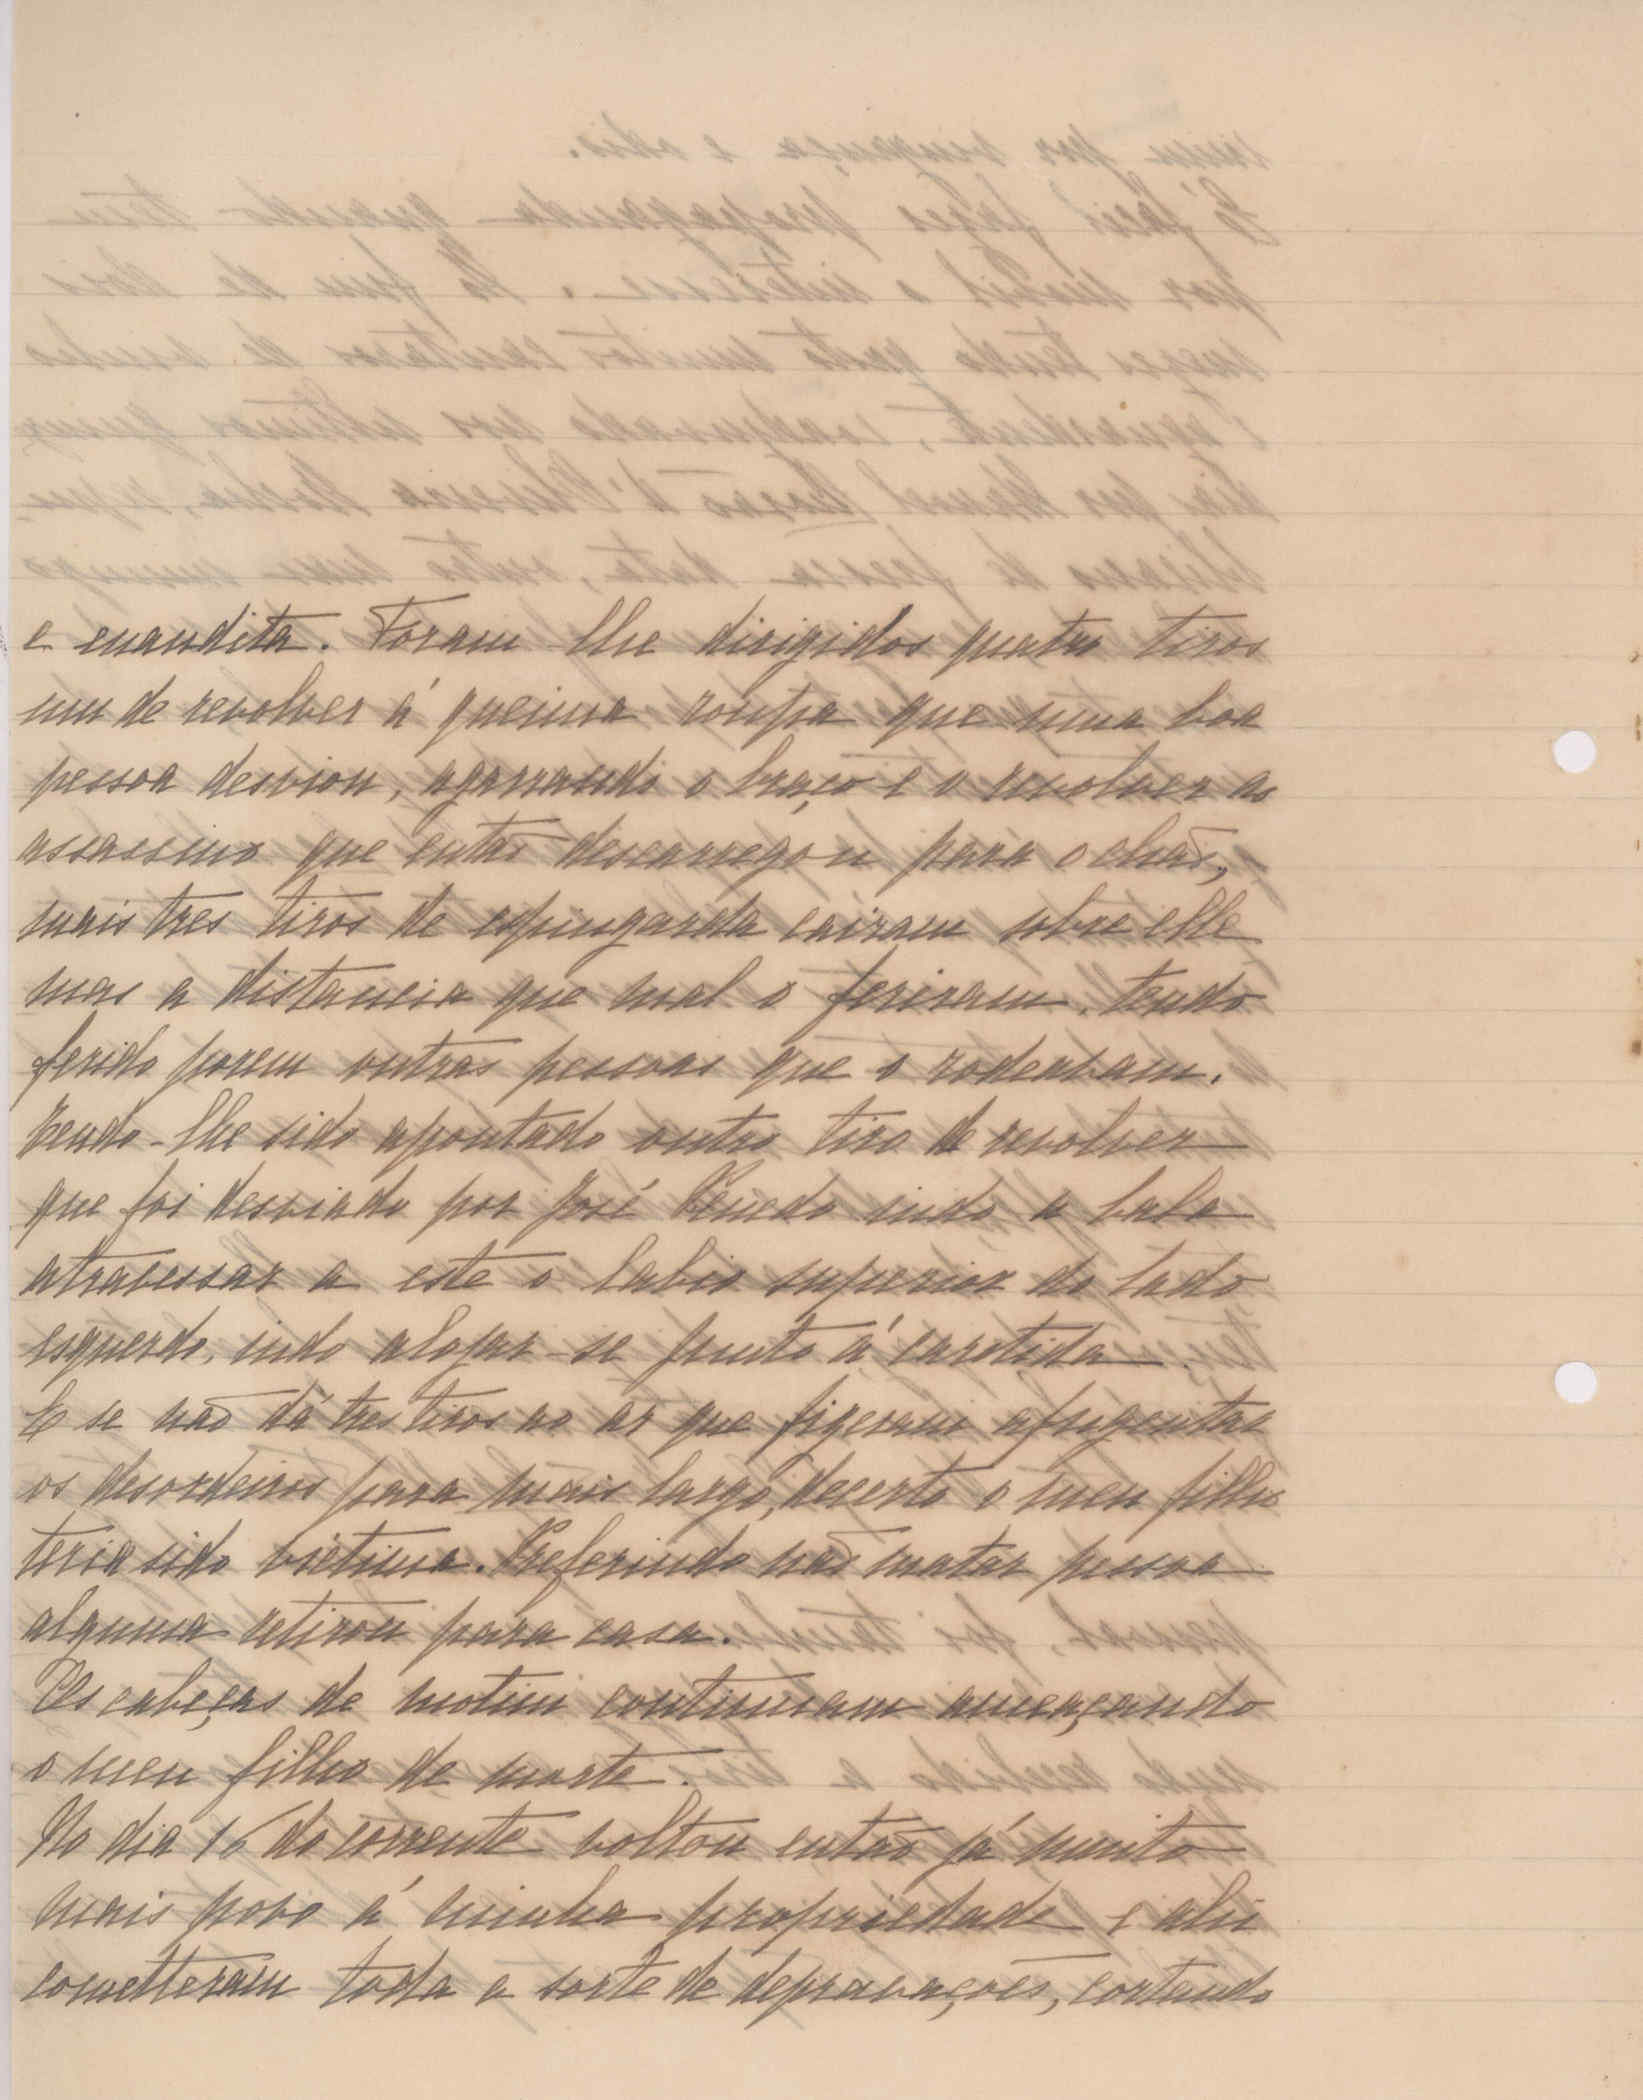 e enaudita. Foram-lhe dirigidos quatro tiros
um de revolver á queima roupa que uma boa
pessoa desviou, agarrando o braço e o revolver ao
assassino que então descarregou para o chão,
mais tres tiros de espingarda cairam sobre elle
mas a distancia que mal o feriram, tendo
ferido porem outras pessoas que o rodeavam.
Tendo-lhe sido apontado outro tiro de revolver
que foi desviado por José Penedo indo a bala
atravessar a este o labio superior do lado
esquerdo, indo alojar-se junto á carotida.
E se não dá tres tiros ao ar que fizeram afugentar
os desordeiros para mais largo, decerto o meu filho
teria sido victima. Preferindo não matar pessoa
alguma retirou para casa.
Os cabeças de motim continuam ameaçando
o meu filho de morte.
No dia 16 do corrente voltou então já muito
mais povo á minha propriedade e ahi
cometteram toda a sorte de depravações, cortando